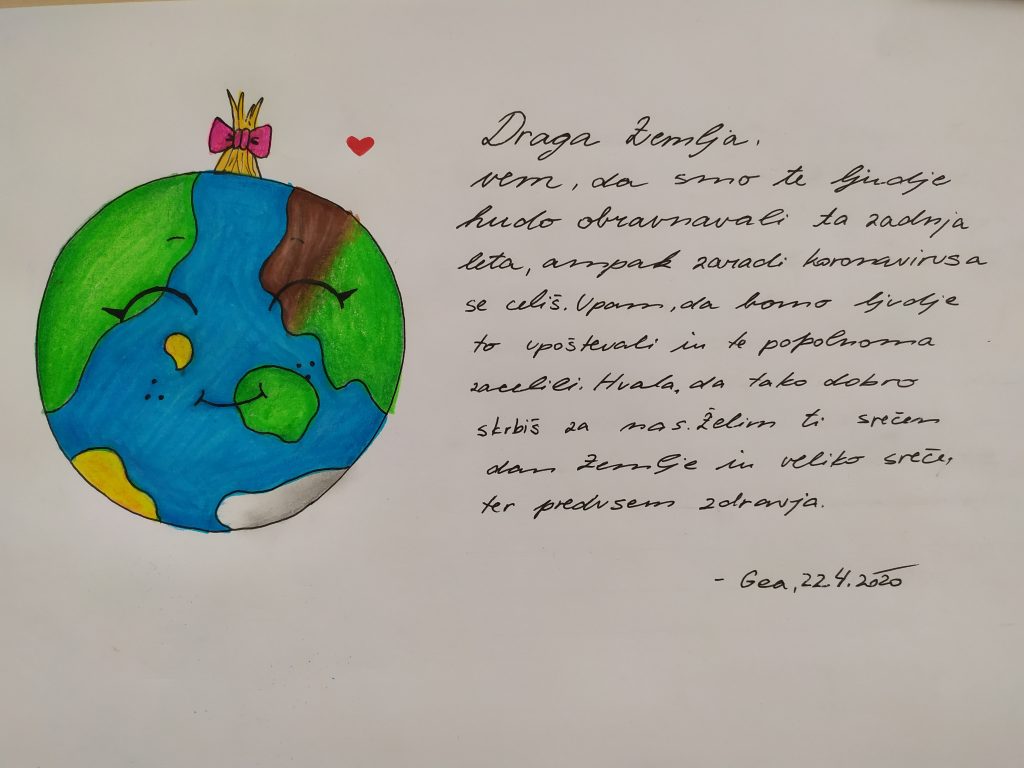 Draga Zemlja,
vem, da smo te ljudje
hudo obravnavali ta zadnja
leta, ampak zaradi koronavirusa
se celiš. Upam, da bomo ljudje
to upoštevali in te popolnoma
zacelili. Hvala, da tako dobro
skrbiš za nas. Želim ti srečen
dan Zemlje in veliko sreče,
ter predvsem zdravja.
- Gea, 22.4.2020